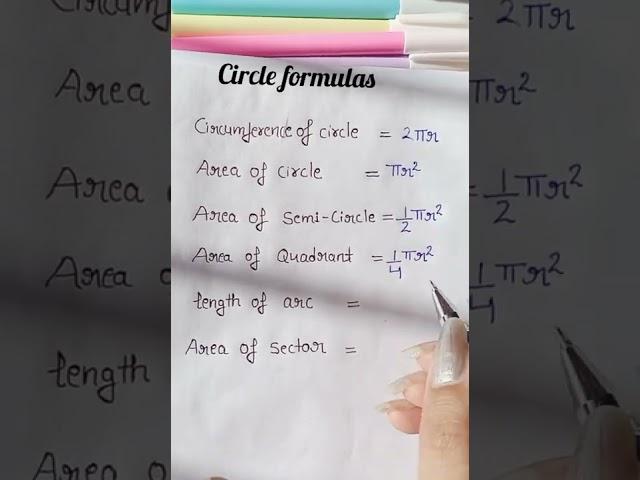 Circle formulas
Circumference of circle = 2πr
Area of circle = πr²
Area of Semi-Circle = 1/2 πr²
Area of Quadrant = 1/4 πr²
length of arc =
Area of sector =